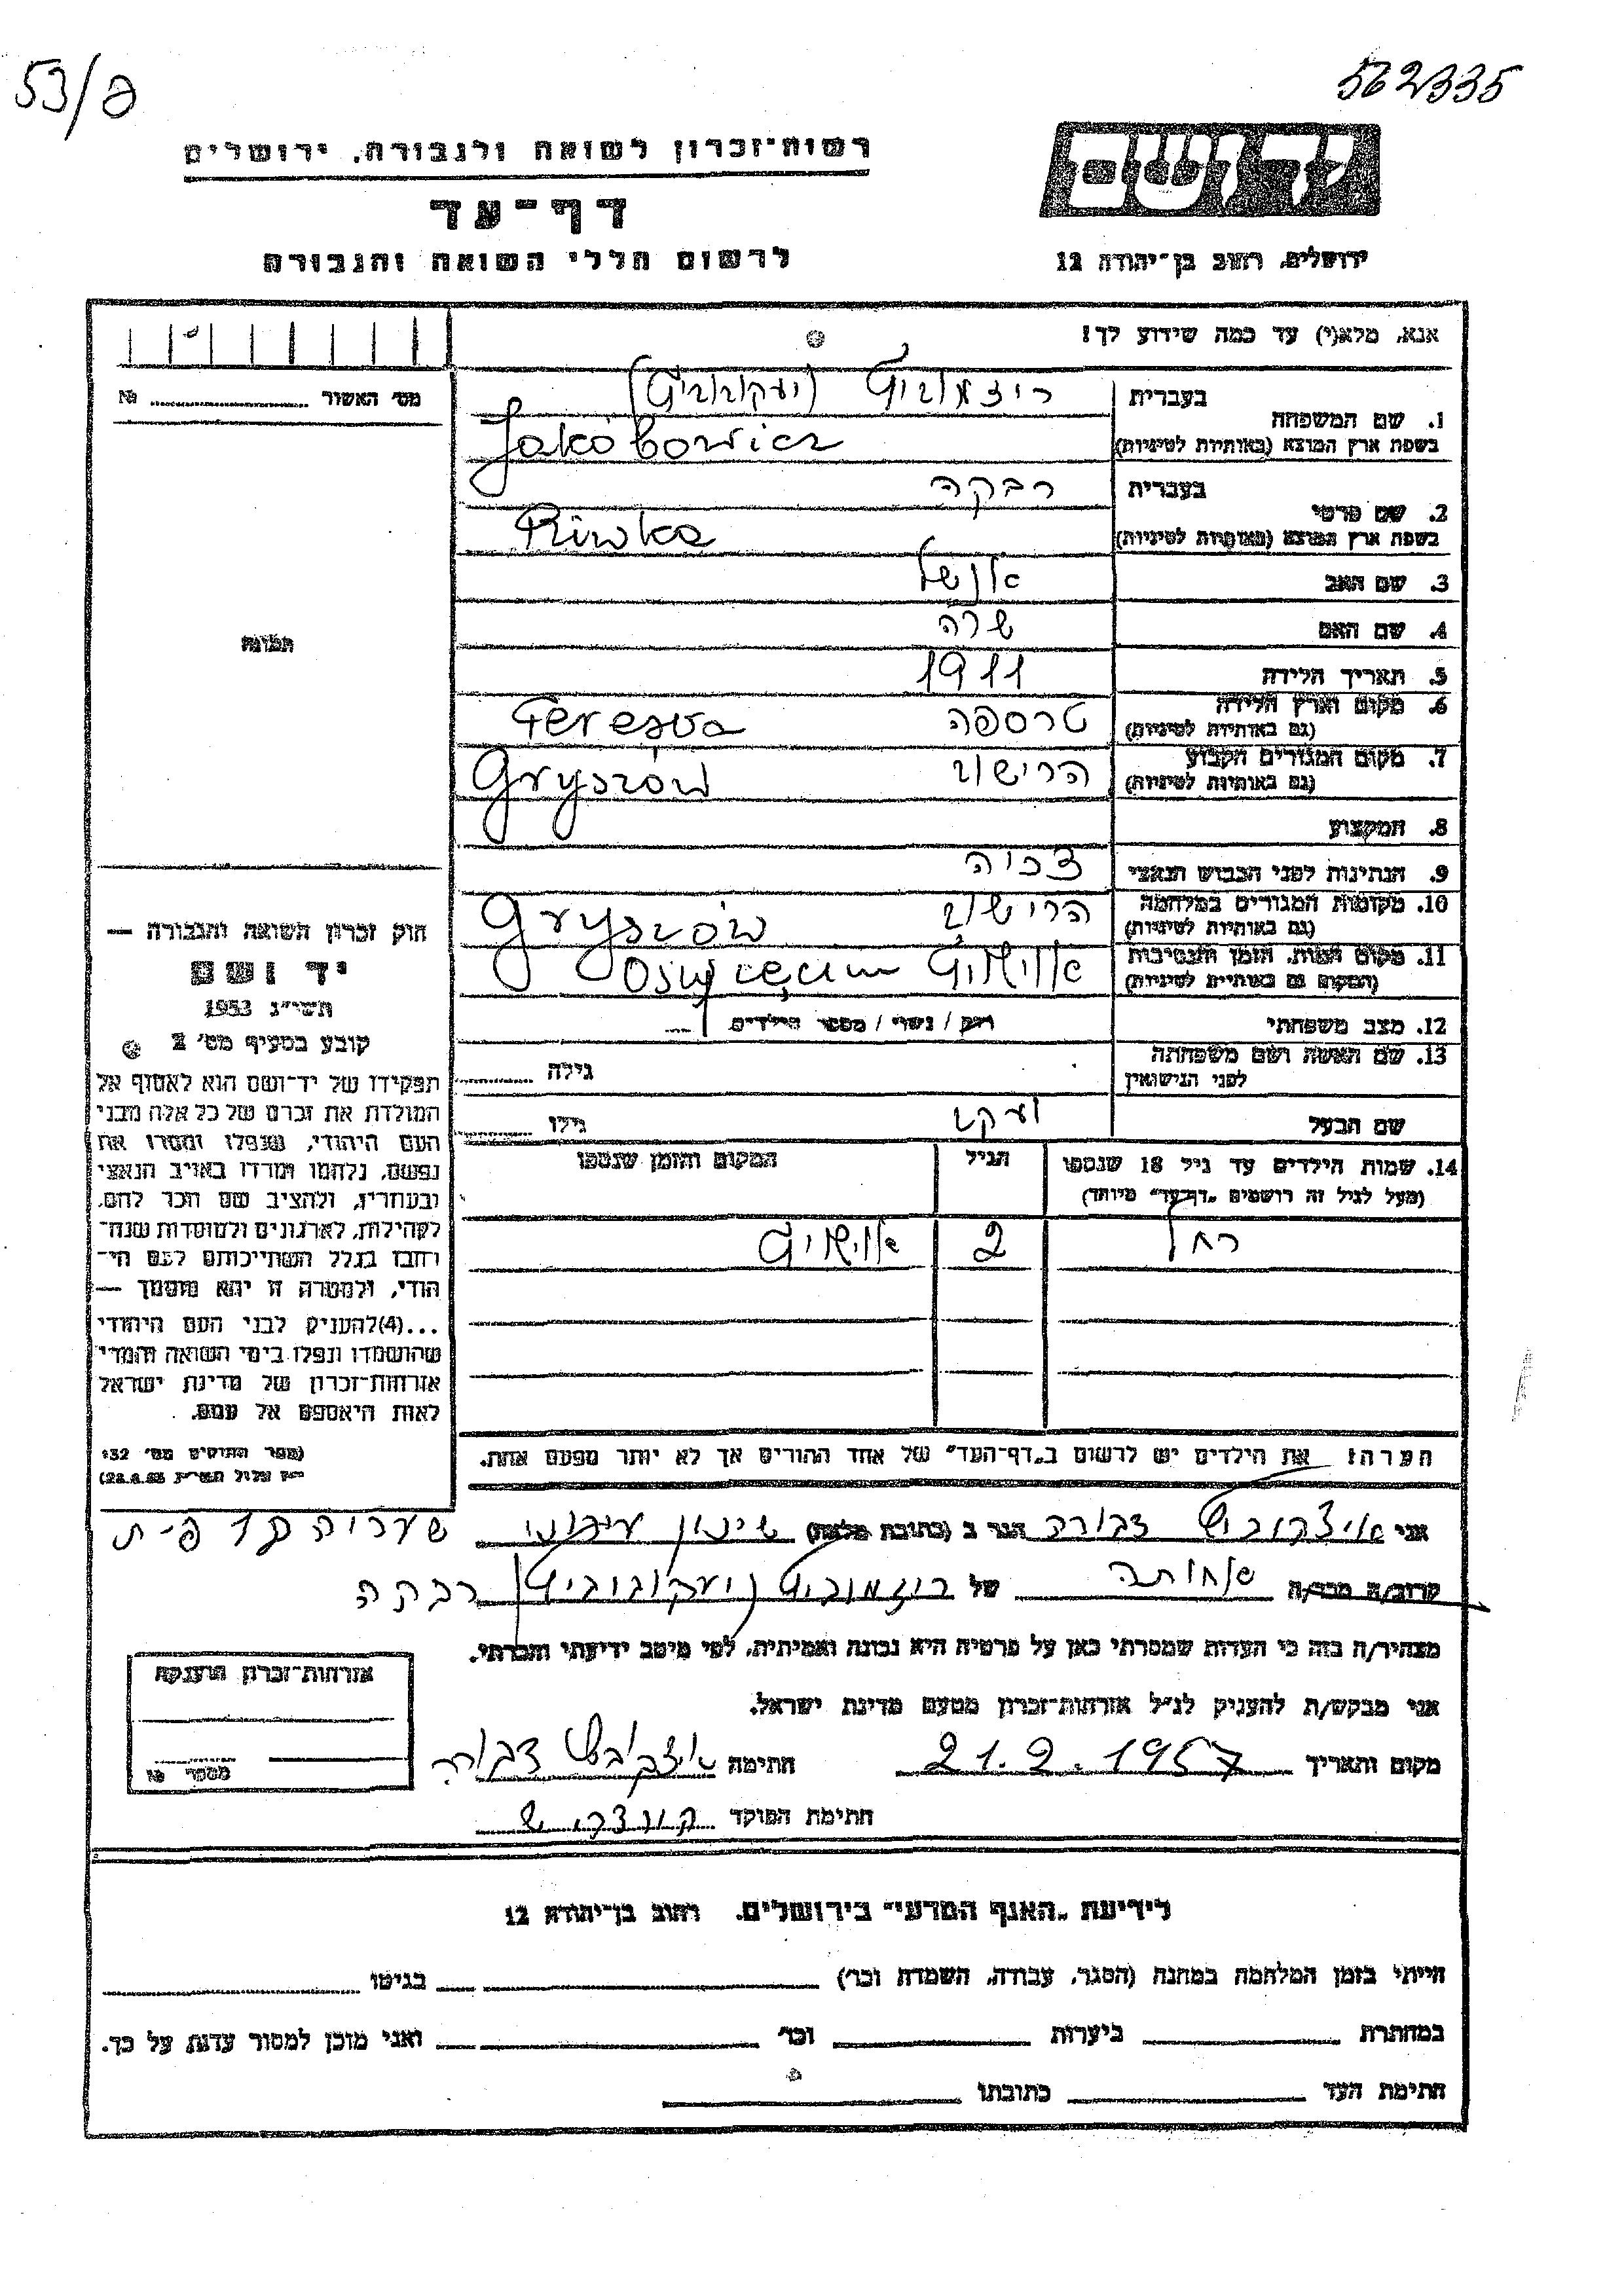 53/ם
562335
יד ושם
רשות-זכרון לשואה ולגבורה, ירושלים
דף-עד
לרשום חללי השואה והגבורה
ירושלים, רחוב בן-יהודה 12
אנא, מלא(י) עד כמה שידוע לך!
מס׳ האשור № ........
1. שם המשפחה
בעברית (יעקובוביץ)
בשפת ארץ המוצא (באותיות לטיניות) Jakóbowicz
2. שם פרטי
בעברית רבקה
בשפת ארץ המוצא (באותיות לטיניות) Riwka
3. שם האב אנשל
4. שם האם שרה
5. תאריך הלידה 1911
6. מקום וארץ הלידה טרספה Teresva
(גם באותיות לטיניות)
7. מקום המגורים הקבוע הרישוב Gryszów
(גם באותיות לטיניות)
8. המקצוע
9. הנתינות לפני הכבוש הנאצי צכיה
10. מקומות המגורים במלחמה הרישוב Gryszów
(גם באותיות לטיניות)
11. מקום המות, הזמן והנסיבות אושוויץ Oświęcim
(המקום גם באותיות לטיניות)
12. מצב משפחתי רווק / נשוי / מספר הילדים 1
13. שם האשה ושם משפחתה
לפני הנישואין
גילה ........
שם הבעל יעקב גילו ........
14. שמות הילדים עד גיל 18 שנספו
(מעל לגיל זה רושמים „דף-עד" מיוחד)
הגיל
המקום והזמן שנספו
רחל 2 אושוויץ
הערה: את הילדים יש לרשום ב„דף-העד" של אחד ההורים אך לא יותר מפעם אחת.
תמונה
חוק זכרון השואה והגבורה —
יד ושם
תשי״ג 1953
קובע בסעיף מס׳ 2
תפקידו של יד-ושם הוא לאסוף אל
המולדת את זכרם של כל אלה מבני
העם היהודי, שנפלו ומסרו את
נפשם, נלחמו ומרדו באויב הנאצי
ובעוזריו, ולהציב שם וזכר להם,
לקהילות, לארגונים ולמוסדות שנח-
רחבו בגלל השתייכותם לעם הי-
הודי, ולמטרה זו יהא מוסמך —
...(4)להעניק לבני העם היהודי
שהושמדו ונפלו בימי השואה והמרי
אזרחות-זכרון של מדינת ישראל
לאות היאספם אל עמם.
(ספר החוקים מס׳ 132
28.8.53)
אני איצקוביץ דבורה הגר ב (כתובת מלאה) שיכון עירוני
קרוב/ה מכר/ה אחותה של (יעקובוביץ) רבקה
מצהיר/ה בזה כי העדות שמסרתי כאן על פרטיה היא נכונה ואמיתית, לפי מיטב ידיעתי והכרתי.
אני מבקש/ת להעניק לנ״ל אזרחות-זכרון מטעם מדינת ישראל.
מקום ותאריך 21.2.1957 חתימה איצקוביץ דבורה
חתימת הפוקד
אזרחות-זכרון הוענקה
מספר №
לידיעת „האגף המדעי" בירושלים, רחוב בן-יהודה 12
הייתי בזמן המלחמה במחנה (הסגר, עבודה, השמדה וכו׳) בגיטו
במחתרת ביערות וכו׳ ואני מוכן למסור עדות על כך.
חתימת העד כתובתו